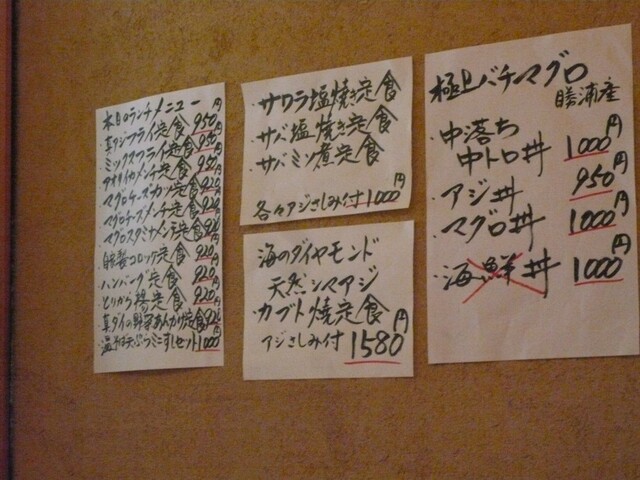 本日のランチメニュー
真アジフライ定食 950円
ミックスフライ定食 950
アオリイカメンチ定食 950
マグロチーズカツ定食 920
マグロチーズメンチ定食 920
マグロスタミナメンチ定食 920
自家製コロッケ定食 920
ハンバーグ定食 920
とりから揚定食 920
真ダイの野菜あんかけ定食 920
温そば天ぷらミニすしセット 1000円
サワラ塩焼き定食
・サバ塩焼き定食
・サバミソ煮定食
各々アジさしみ付 1000円
海のダイヤモンド
天然シマアジ
・カブト焼定食
アジさしみ付 1580円
極上バチマグロ
勝浦産
・中落ち
中トロ丼 1000円
・アジ丼 950円
・マグロ丼 1000円
・海鮮丼 1000円